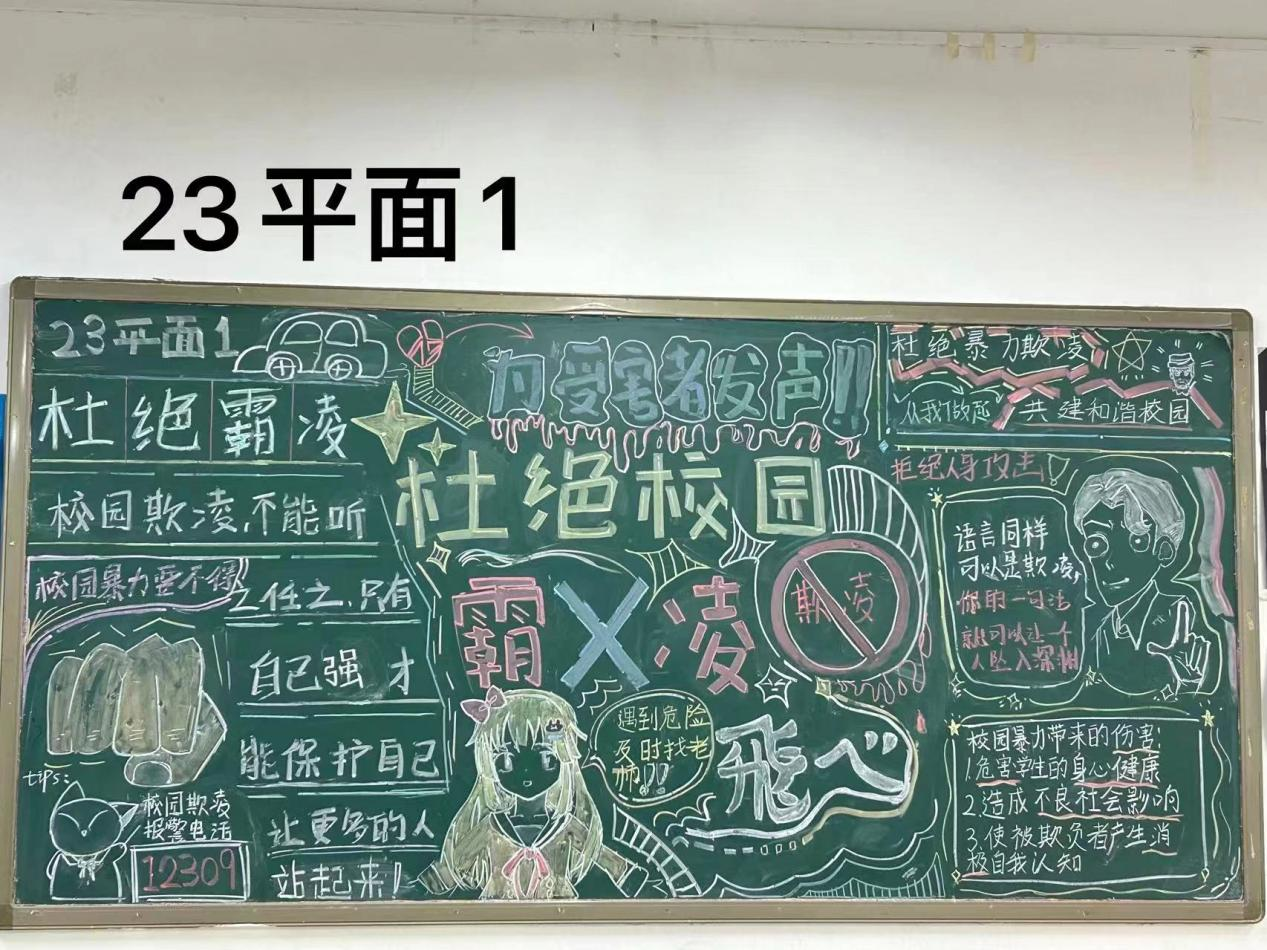 23平面1
23平面1
杜绝霸凌
校园欺凌,不能听
之任之,只有
自己强才
能保护自己
让更多的人
站起来!
校园暴力要不得
tips:
校园欺凌
报警电话
12309
为受害者发声!!
杜绝校园
霸凌
欺凌
遇到危险
及时找老
师!!
飛べ
杜绝暴力欺凌
从我们做起
共建和谐校园
拒绝人身攻击!
语言同样
可以是欺凌,
你的一句话
就可以让一个
人坠入深渊
校园暴力带来的伤害:
1.危害学生的身心健康
2.造成不良社会影响
3.使被欺负者产生消
极自我认知